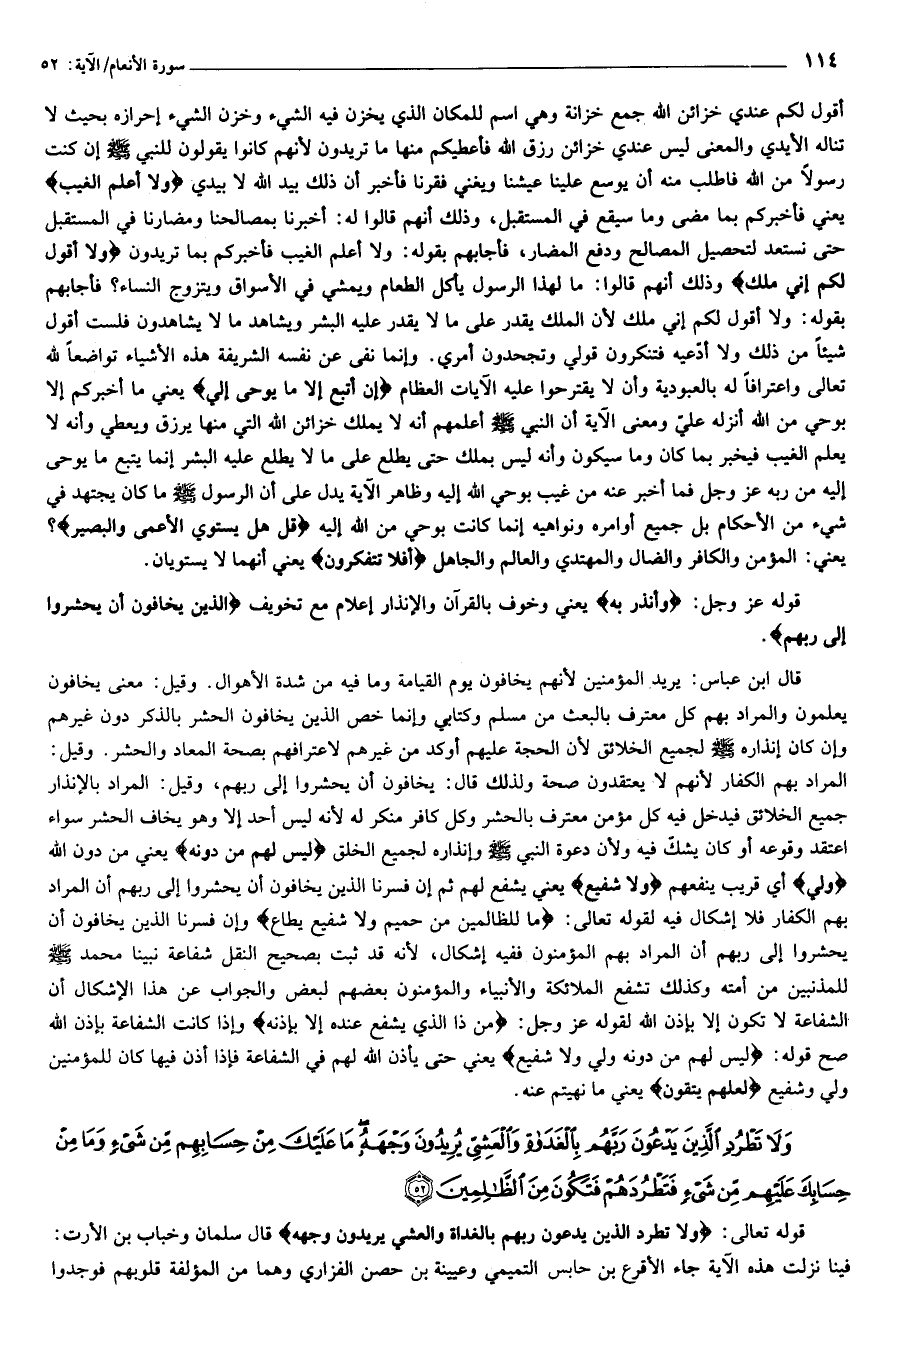 ١١٤ سورة الأنعام/ الآية: ٥٢
أقول لكم عندي خزائن الله جمع خزانة وهي اسم للمكان الذي يخزن فيه الشيء وخزن الشيء إحرازه بحيث لا
تناله الأيدي والمعنى ليس عندي خزائن رزق الله فأعطيكم منها ما تريدون لأنهم كانوا يقولون للنبي ﷺ إن كنت
رسولاً من الله فاطلب منه أن يوسع علينا عيشنا ويغني فقرنا فأخبر أن ذلك بيد الله لا بيدي ﴿ولا أعلم الغيب﴾
يعني فأخبركم بما مضى وما سيقع في المستقبل، وذلك أنهم قالوا له: أخبرنا بمصالحنا ومضارنا في المستقبل
حتى نستعد لتحصيل المصالح ودفع المضار، فأجابهم بقوله: ولا أعلم الغيب فأخبركم بما تريدون ﴿ولا أقول
لكم إني ملك﴾ وذلك أنهم قالوا: ما لهذا الرسول يأكل الطعام ويمشي في الأسواق ويتزوج النساء؟ فأجابهم
بقوله: ولا أقول لكم إني ملك لأن الملك يقدر على ما لا يقدر عليه البشر ويشاهد ما لا يشاهدون فلست أقول
شيئاً من ذلك ولا أدّعيه فتنكرون قولي وتجحدون أمري. وإنما نفى عن نفسه الشريفة هذه الأشياء تواضعاً لله
تعالى واعترافاً له بالعبودية وأن لا يقترحوا عليه الآيات العظام ﴿إن أتبع إلا ما يوحى إلي﴾ يعني ما أخبركم إلا
بوحي من الله أنزله عليّ ومعنى الآية أن النبي ﷺ أعلمهم أنه لا يملك خزائن الله التي منها يرزق ويعطي وأنه لا
يعلم الغيب فيخبر بما كان وما سيكون وأنه ليس بملك حتى يطلع على ما لا يطلع عليه البشر إنما يتبع ما يوحى
إليه من ربه عز وجل فما أخبر عنه من غيب بوحي الله إليه وظاهر الآية يدل على أن الرسول ﷺ ما كان يجتهد في
شيء من الأحكام بل جميع أوامره ونواهيه إنما كانت بوحي من الله إليه ﴿قل هل يستوي الأعمى والبصير﴾؟
يعني: المؤمن والكافر والضال والمهتدي والعالم والجاهل ﴿أفلا تتفكرون﴾ يعني أنهما لا يستويان.
قوله عز وجل: ﴿وأنذر به﴾ يعني وخوف بالقرآن والإنذار إعلام مع تخويف ﴿الذين يخافون أن يحشروا
إلى ربهم﴾.
قال ابن عباس: يريد المؤمنين لأنهم يخافون يوم القيامة وما فيه من شدة الأهوال. وقيل: معنى يخافون
يعلمون والمراد بهم كل معترف بالبعث من مسلم وكتابي وإنما خص الذين يخافون الحشر بالذكر دون غيرهم
وإن كان إنذاره ﷺ لجميع الخلائق لأن الحجة عليهم أوكد من غيرهم لاعترافهم بصحة المعاد والحشر. وقيل:
المراد بهم الكفار لأنهم لا يعتقدون صحة ولذلك قال: يخافون أن يحشروا إلى ربهم، وقيل: المراد بالإنذار
جميع الخلائق فيدخل فيه كل مؤمن معترف بالحشر وكل كافر منكر له لأنه ليس أحد إلا وهو يخاف الحشر سواء
اعتقد وقوعه أو كان يشكّ فيه ولأن دعوة النبي ﷺ وإنذاره لجميع الخلق ﴿ليس لهم من دونه﴾ يعني من دون الله
﴿ولي﴾ أي قريب ينفعهم ﴿ولا شفيع﴾ يعني يشفع لهم ثم إن فسرنا الذين يخافون أن يحشروا إلى ربهم أن المراد
بهم الكفار فلا إشكال فيه لقوله تعالى: ﴿ما للظالمين من حميم ولا شفيع يطاع﴾ وإن فسرنا الذين يخافون أن
يحشروا إلى ربهم أن المراد بهم المؤمنون ففيه إشكال، لأنه قد ثبت بصحيح النقل شفاعة نبينا محمد ﷺ
للمذنبين من أمته وكذلك تشفع الملائكة والأنبياء والمؤمنون بعضهم لبعض والجواب عن هذا الإشكال أن
الشفاعة لا تكون إلا بإذن الله لقوله عز وجل: ﴿من ذا الذي يشفع عنده إلا بإذنه﴾ وإذا كانت الشفاعة بإذن الله
صح قوله: ﴿ليس لهم من دونه ولي ولا شفيع﴾ يعني حتى يأذن الله لهم في الشفاعة فإذا أذن فيها كان للمؤمنين
ولي وشفيع ﴿لعلهم يتقون﴾ يعني ما نهيتم عنه.
وَلَا تَطْرُدِ ٱلَّذِينَ يَدْعُونَ رَبَّهُم بِٱلْغَدَوٰةِ وَٱلْعَشِىِّ يُرِيدُونَ وَجْهَهُۥۖ مَا عَلَيْكَ مِنْ حِسَابِهِم مِّن شَىْءٍ وَمَا مِنْ
حِسَابِكَ عَلَيْهِم مِّن شَىْءٍ فَتَطْرُدَهُمْ فَتَكُونَ مِنَ ٱلظَّٰلِمِينَ ٥٢
قوله تعالى: ﴿ولا تطرد الذين يدعون ربهم بالغداة والعشي يريدون وجهه﴾ قال سلمان وخباب بن الأرت:
فينا نزلت هذه الآية جاء الأقرع بن حابس التميمي وعيينة بن حصن الفزاري وهما من المؤلفة قلوبهم فوجدوا